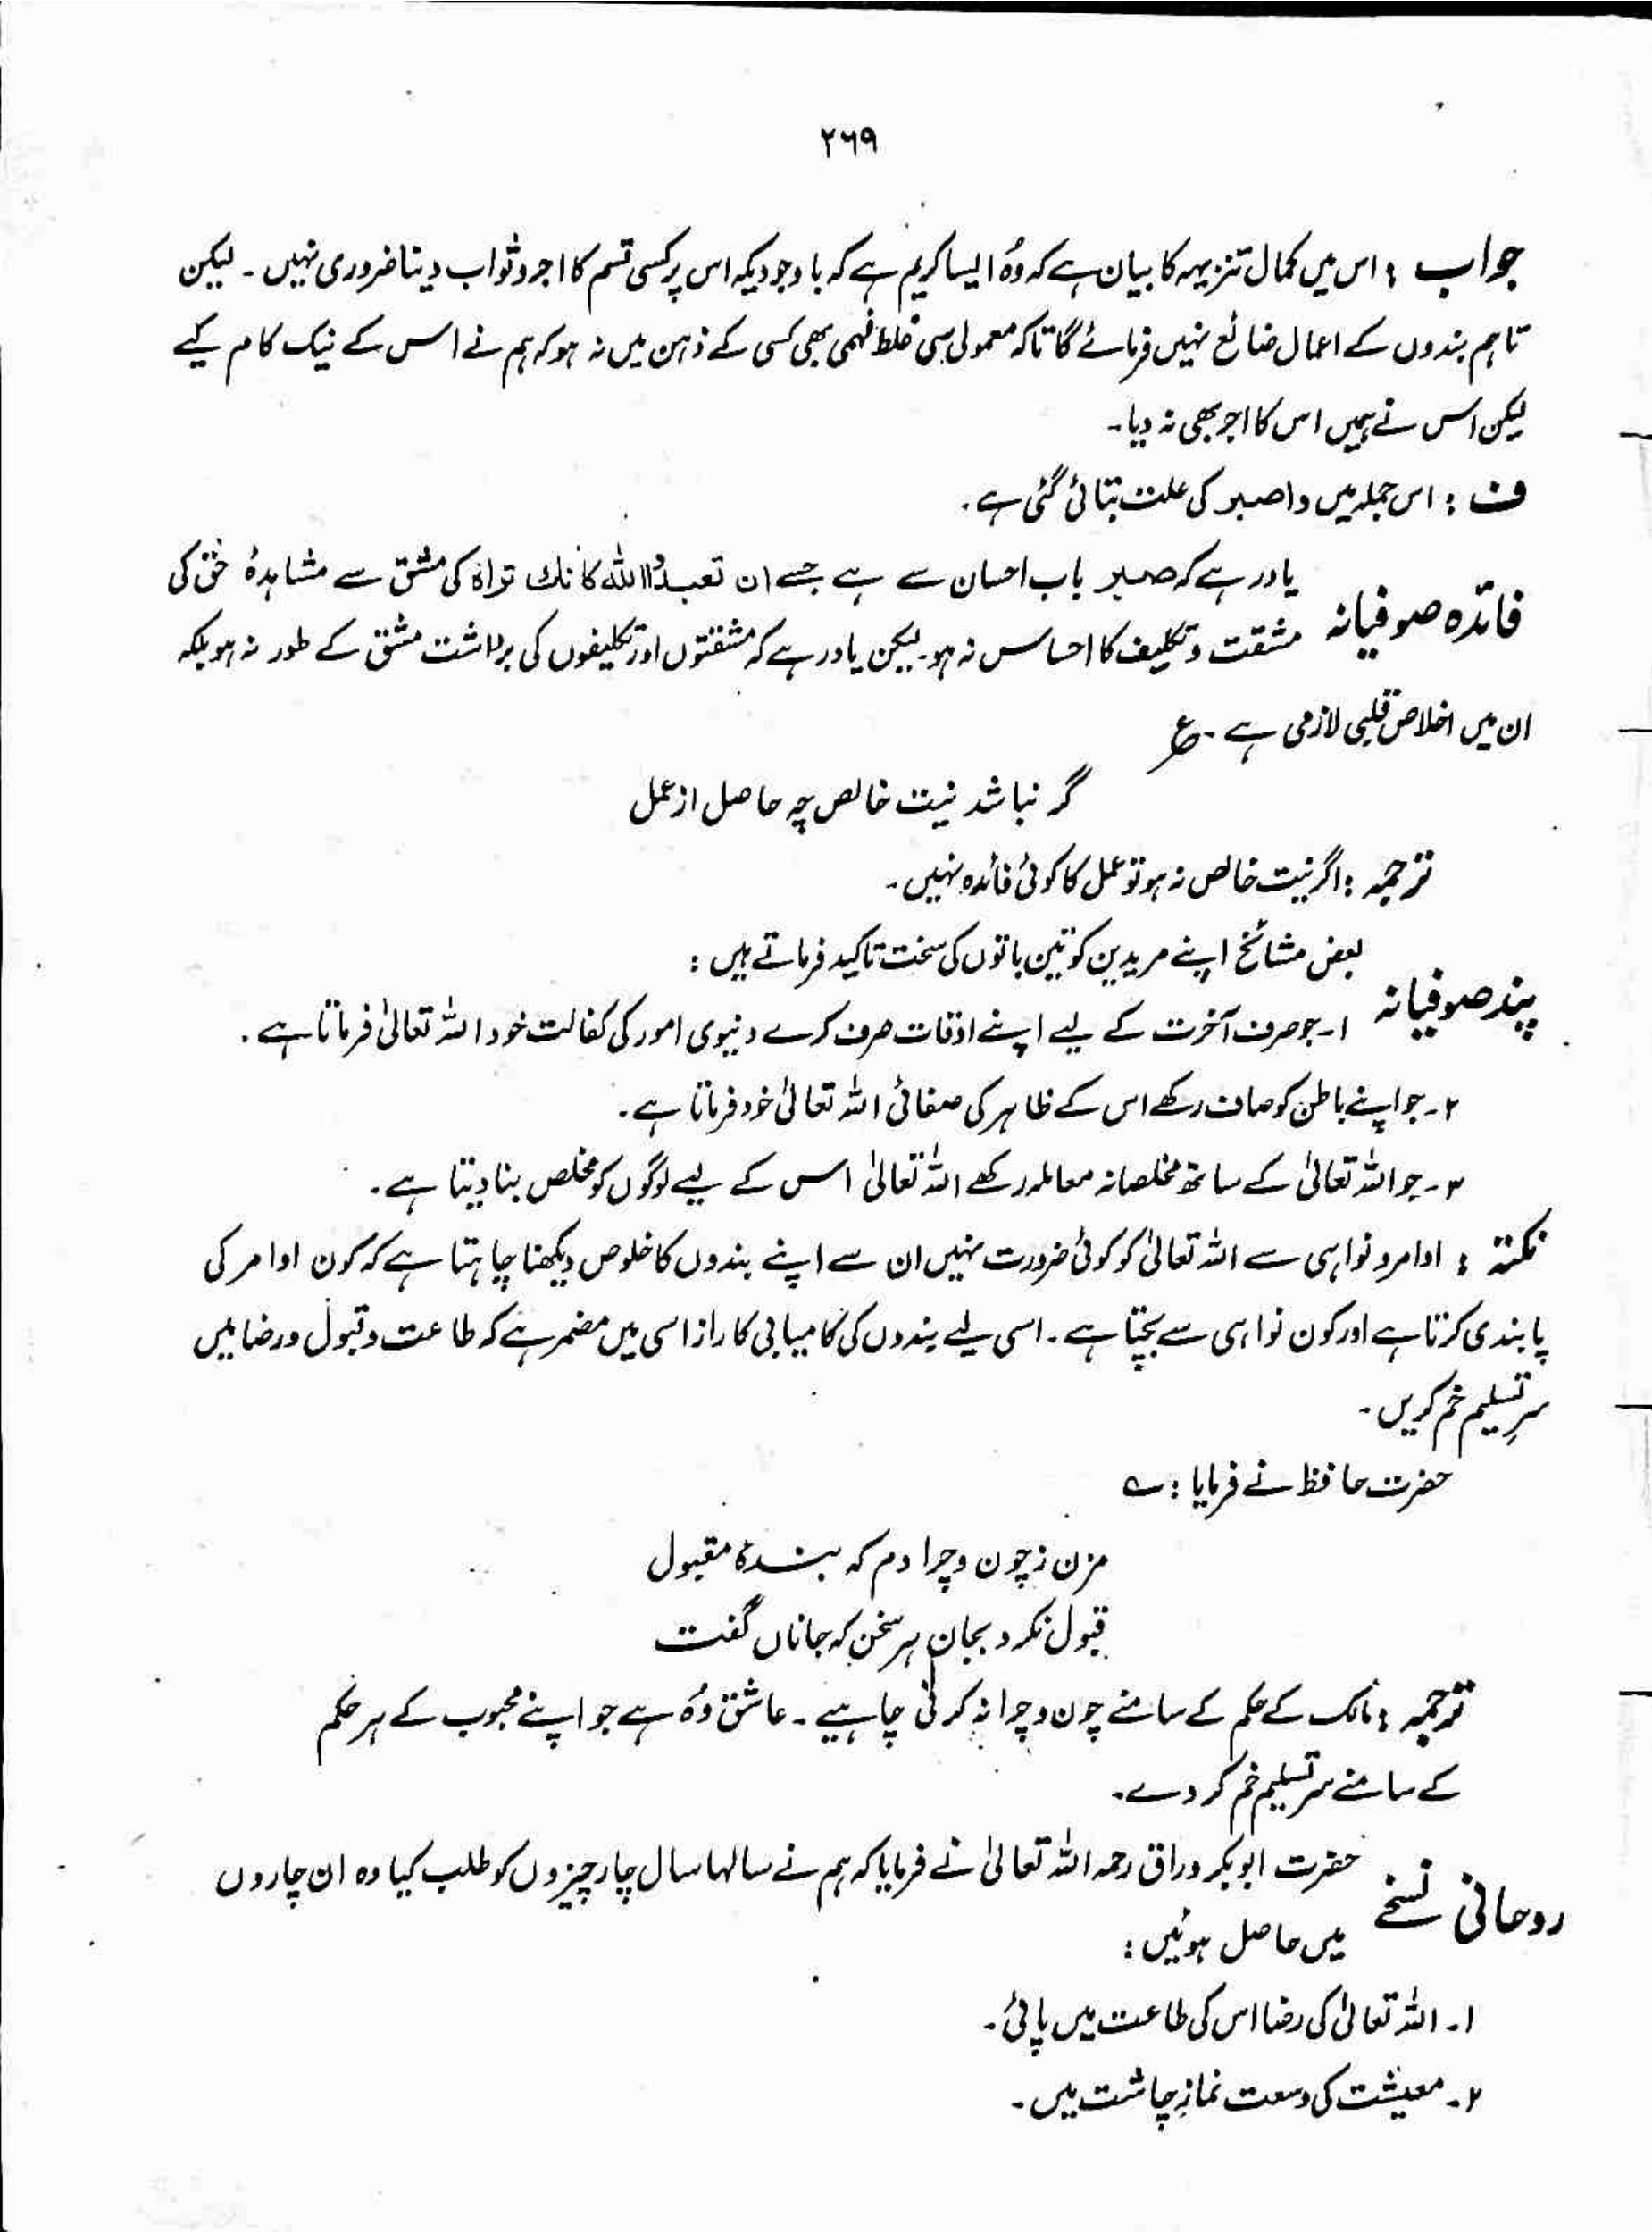 ۲۶۹
جواب : اس میں کمال تنزیہہ کا بیان ہے کہ وُہ ایسا کریم ہے کہ باوجودیکہ اس پر کسی قسم کا اجر و ثواب دینا ضروری نہیں ۔ لیکن
تاہم بندوں کے اعمال ضائع نہیں فرمائے گا تاکہ معمولی سی غلط فہمی بھی کسی کے ذہن میں نہ ہو کہ ہم نے اس کے نیک کام کیے
لیکن اس نے ہمیں اس کا اجر بھی نہ دیا۔
ف : اس جملہ میں واصبر کی علت بتائی گئی ہے ۔
فائدہ صوفیانہ
یاد رہے کہ صبر باب احسان سے ہے جسے ان تعبدُ اللہ کانك تراہ کی مشق سے مشاہدۂ حق کی
مشقت و تکلیف کا احساس نہ ہو۔ لیکن یاد رہے کہ مشقتوں اور تکلیفوں کی برداشت مشق کے طور نہ ہو بلکہ
ان میں اخلاص قلبی لازمی ہے ۔ ع
گر نباشد نیت خالص چہ حاصل از عمل
ترجمہ : اگر نیت خالص نہ ہو تو عمل کا کوئی فائدہ نہیں ۔
پند صوفیانہ
بعض مشائخ اپنے مریدین کو تین باتوں کی سخت تاکید فرماتے ہیں :
۱۔ جو صرف آخرت کے لیے اپنے اوقات صرف کرے دنیوی امور کی کفالت خود اللہ تعالیٰ فرماتا ہے ۔
۲۔ جو اپنے باطن کو صاف رکھے اس کے ظاہر کی صفائی اللہ تعالیٰ خود فرماتا ہے ۔
۳۔ جو اللہ تعالیٰ کے ساتھ مخلصانہ معاملہ رکھے اللہ تعالیٰ اس کے لیے لوگوں کو مخلص بنا دیتا ہے ۔
نکتہ : اوامر و نواہی سے اللہ تعالیٰ کو کوئی ضرورت نہیں ان سے اپنے بندوں کا خلوص دیکھنا چاہتا ہے کہ کون اوامر کی
پابندی کرتا ہے اور کون نواہی سے بچتا ہے ۔ اسی لیے بندوں کی کامیابی کا راز اسی میں مضمر ہے کہ طاعت و قبول و رضا میں
سرِ تسلیم خم کریں ۔
حضرت حافظ نے فرمایا : ؎
مزن ز چون و چرا دم کہ بندۂ مقبول
قبول نکرد بجان ہر سخن کہ جاناں گفت
ترجمہ : مالک کے حکم کے سامنے چون و چرا نہ کرنی چاہیے ۔ عاشق وُہ ہے جو اپنے محبوب کے ہر حکم
کے سامنے سر تسلیم خم کر دے ۔
روحانی نسخے
حضرت ابوبکر وراق رحمہ اللہ تعالیٰ نے فرمایا کہ ہم نے سالہا سال چار چیزوں کو طلب کیا وہ ان چاروں
میں حاصل ہوئیں :
۱۔ اللہ تعالیٰ کی رضا اس کی طاعت میں پائی ۔
۲۔ معیشت کی وسعت نمازِ چاشت میں ۔